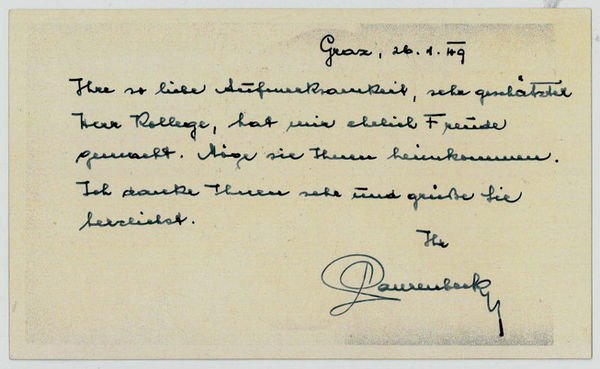 Graz, 26. 1. 49
Ihre so liebe Aufmerksamkeit, sehr geschätzter
Herr Kollege, hat mir ehrlich Freude
gemacht. Möge sie Ihnen heimkommen.
Ich danke Ihnen sehr und grüße Sie
herzlichst.
Ihr